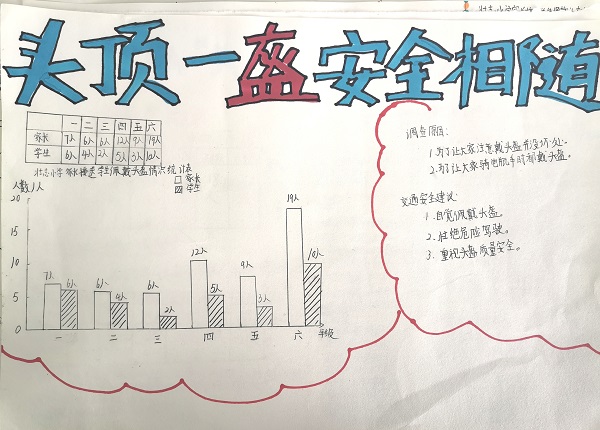 头顶一盔安全相随
一 二 三 四 五 六
家长 7人 6人 6人 12人 9人 19人
学生 6人 4人 2人 5人 3人 10人
壮志小学家长接送学生佩戴头盔情况统计表
人数/人
家长
学生
20
15
10
5
0
7人 6人 6人 4人 6人 2人 12人 5人 9人 3人 19人 10人
一 二 三 四 五 六 年级
调查原因:
1.为了让大家注意戴头盔有没坏处.
2.为了让大家骑电肌车时都戴头盔。
交通安全建议:
1.自觉佩戴头盔
2.拒绝危险驾驶。
3.重视头盔质量安全。